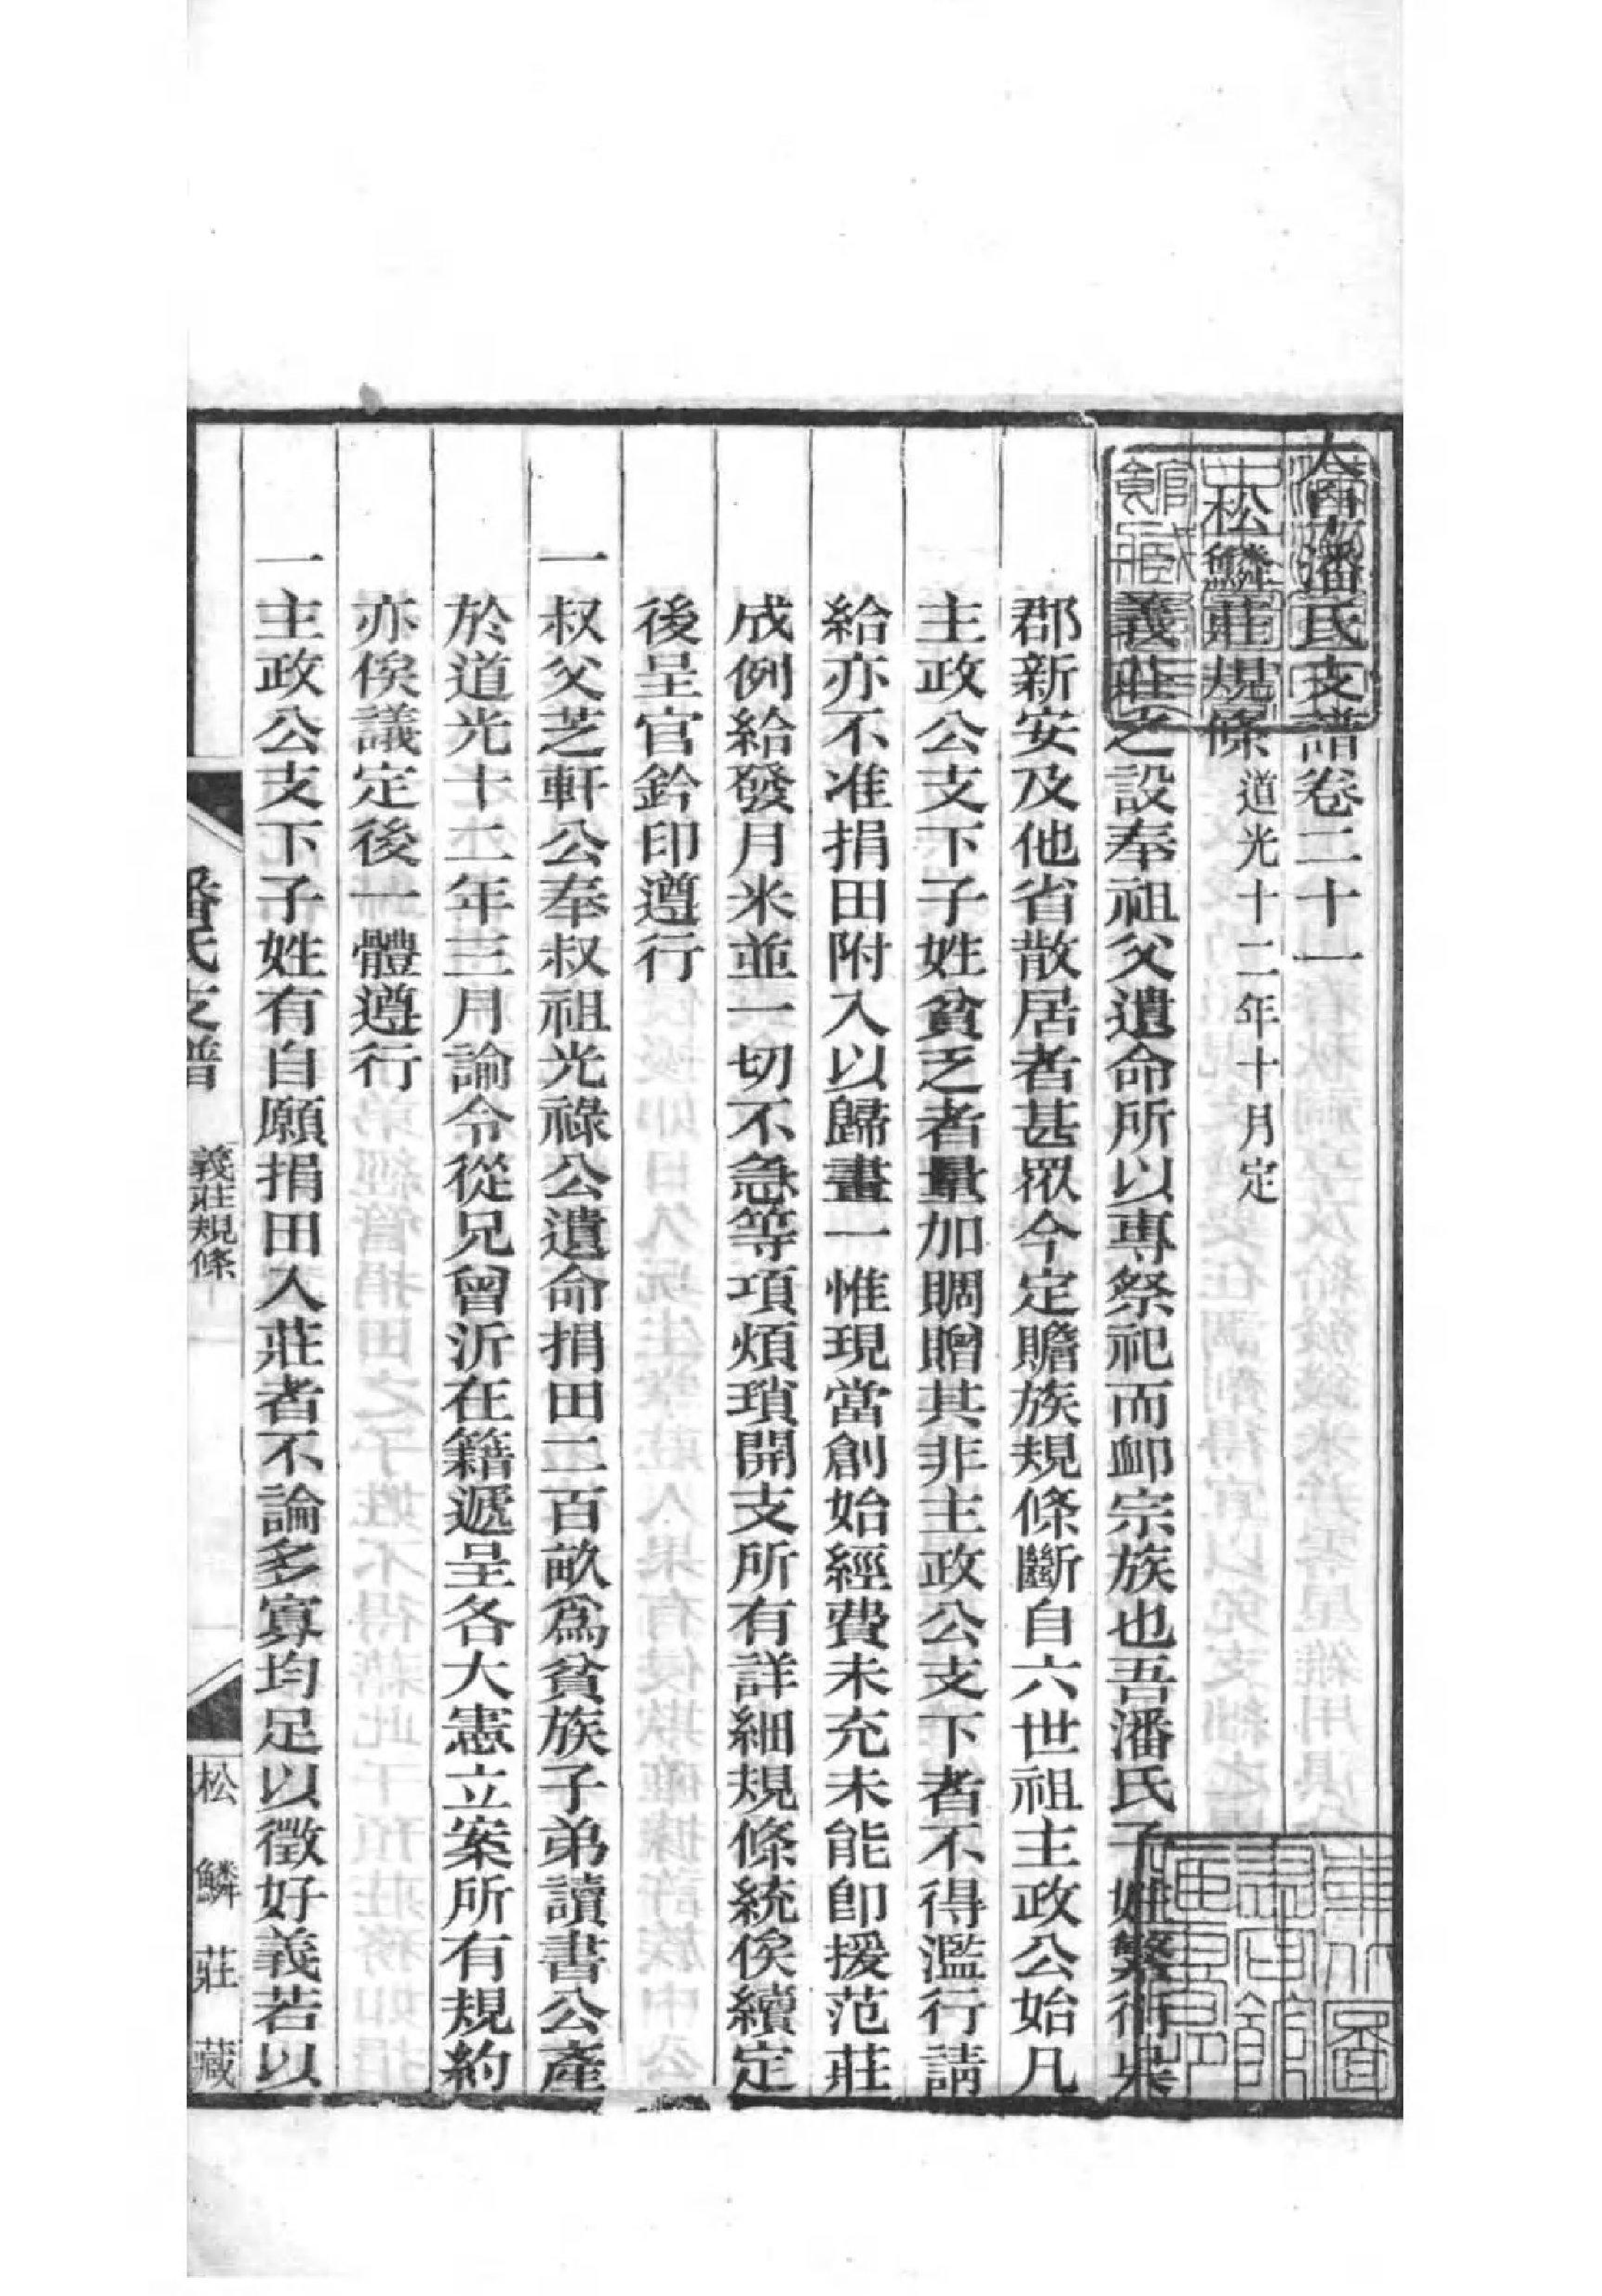 大阜潘氏支譜卷二十一
松鱗莊規條 道光十二年十月定
義莊之設奉祖父遺命所以專祭祀而卹宗族也吾潘氏子姓繁衍吳
郡新安及他省散居者甚眾今定贍族規條斷自六世祖主政公始凡
主政公支下子姓貧乏者量加賙贈其非主政公支下者不得濫行請
給亦不准捐田附入以歸畫一惟現當創始經費未充未能卽援范莊
成例給發月米並一切不急等項煩瑣開支所有詳細規條統俟續定
後呈官鈐印遵行
一叔父芝軒公奉叔祖光祿公遺命捐田二百畝爲貧族子弟讀書公產
於道光十二年三月諭令從兄曾沂在籍遞呈各大憲立案所有規約
亦俟議定後一體遵行
一主政公支下子姓有自願捐田入莊者不論多寡均足以徵好義若以
潘氏支譜 義莊規條 一 松鱗莊藏